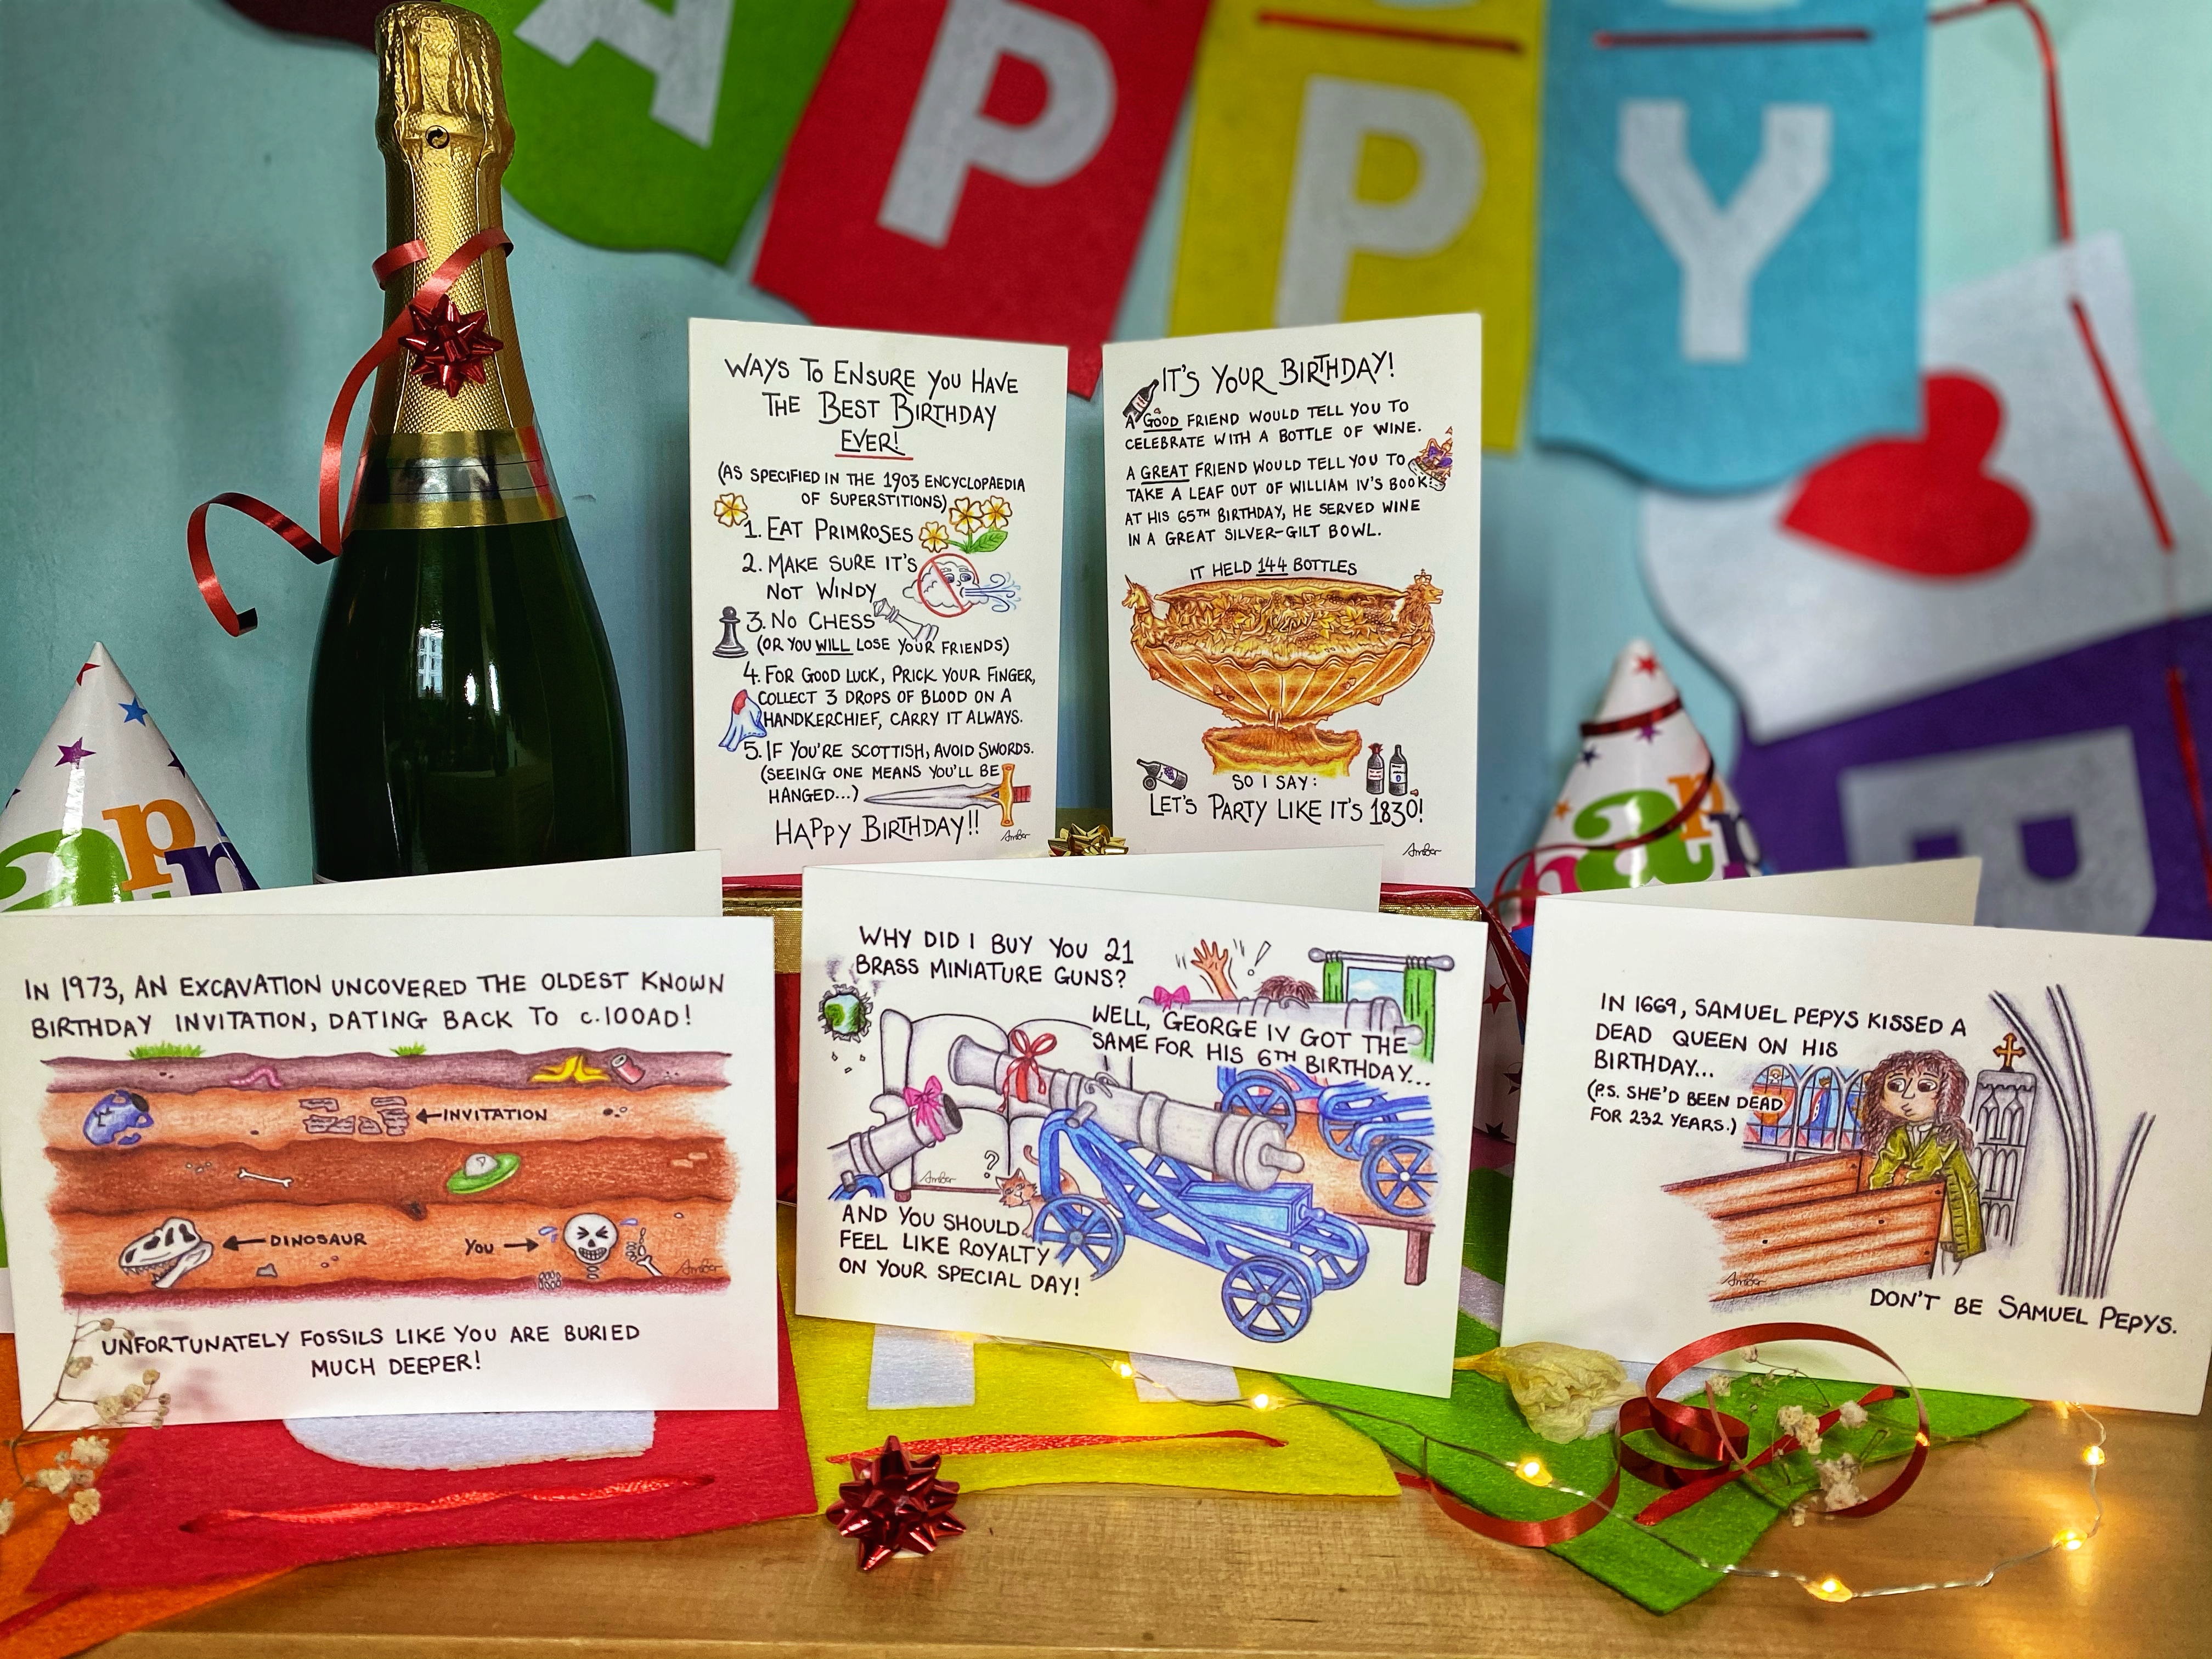 APPY
B
WAYS TO ENSURE YOU HAVE
THE BEST BIRTHDAY
EVER!
(AS SPECIFIED IN THE 1903 ENCYCLOPAEDIA
OF SUPERSTITIONS)
1. EAT PRIMROSES
2. MAKE SURE IT'S
NOT WINDY
3. NO CHESS
(OR YOU WILL LOSE YOUR FRIENDS)
4. FOR GOOD LUCK, PRICK YOUR FINGER,
COLLECT 3 DROPS OF BLOOD ON A
HANDKERCHIEF, CARRY IT ALWAYS.
5. IF YOU'RE SCOTTISH, AVOID SWORDS.
(SEEING ONE MEANS YOU'LL BE
HANGED...)
HAPPY BIRTHDAY!!
Amber
IT'S YOUR BIRTHDAY!
A GOOD FRIEND WOULD TELL YOU TO
CELEBRATE WITH A BOTTLE OF WINE.
A GREAT FRIEND WOULD TELL YOU TO
TAKE A LEAF OUT OF WILLIAM IV'S BOOK.
AT HIS 65TH BIRTHDAY, HE SERVED WINE
IN A GREAT SILVER-GILT BOWL.
IT HELD 144 BOTTLES
SO I SAY:
LET'S PARTY LIKE IT'S 1830!
Amber
app
happ
IN 1973, AN EXCAVATION UNCOVERED THE OLDEST KNOWN
BIRTHDAY INVITATION, DATING BACK TO c.100AD!
INVITATION
DINOSAUR
YOU
Amber
UNFORTUNATELY FOSSILS LIKE YOU ARE BURIED
MUCH DEEPER!
WHY DID I BUY YOU 21
BRASS MINIATURE GUNS?
!
WELL, GEORGE IV GOT THE
SAME FOR HIS 6TH BIRTHDAY...
?
Amber
AND YOU SHOULD
FEEL LIKE ROYALTY
ON YOUR SPECIAL DAY!
IN 1669, SAMUEL PEPYS KISSED A
DEAD QUEEN ON HIS
BIRTHDAY...
(P.S. SHE'D BEEN DEAD
FOR 232 YEARS.)
Amber
DON'T BE SAMUEL PEPYS.